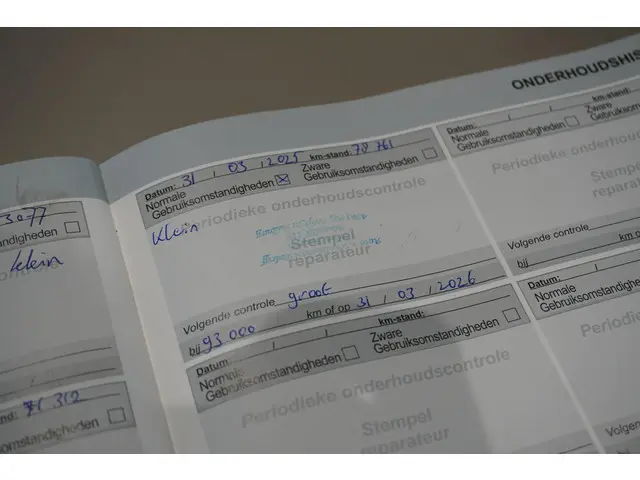 ONDERHOUDSHIS
3077
andigheden
klein
nd: 71 312
omstandigheden
Datum: 31 / 03 / 2025 km-stand: 78 761
Normale Zware
Gebruiksomstandigheden Gebruiksomstandigheden
Periodieke onderhoudscontrole
Klein
Stempel
reparateur
Volgende controle groot
bij 93 000 km of op 31 / 03 / 2026
Datum: / / km-stand:
Normale Zware
Gebruiksomstandigheden Gebruiksomstandigheden
Periodieke onderhoudscontrole
Stempel
reparateur
Datum: / / km-stand:
Normale Zware
Gebruiksomstandigheden Gebruiks
Periodieke onderhoud
Stempel
reparate
Volgende controle
bij km o
Datum: /
Normale
Gebruiksomstandigheden
Periodie
Volgende
bij